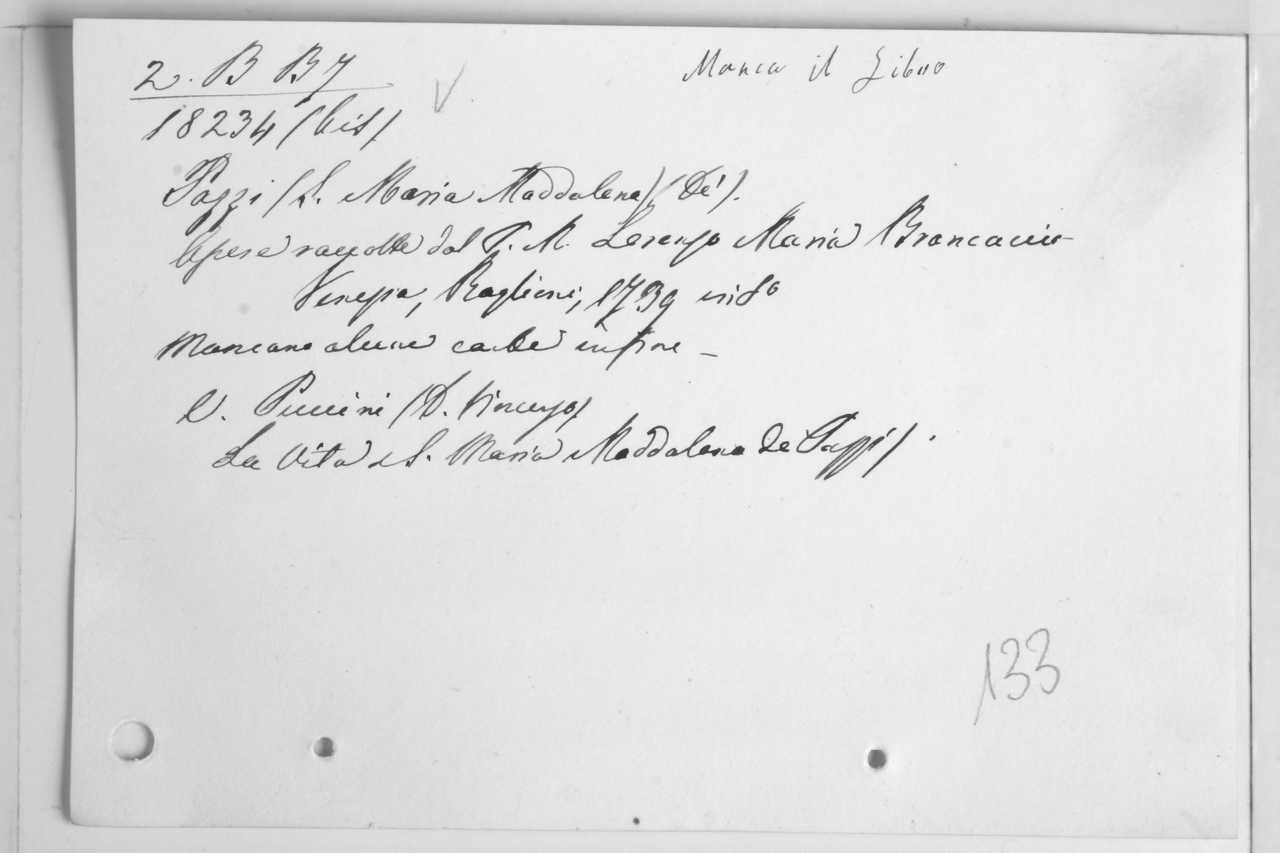 2. B B 7
Manca il Libro
18234 (bis)
Pazzi (S. Maria Maddalena) (De').
Opere raccolte dal P. M. Lorenzo Maria Brancaccio
Venezia, Baglioni, 1739 in 8º
Mancano alcune carte in fine –
V. Puccini (D. Vincenzo)
La Vita di S. Maria Maddalena de Pazzi).
133